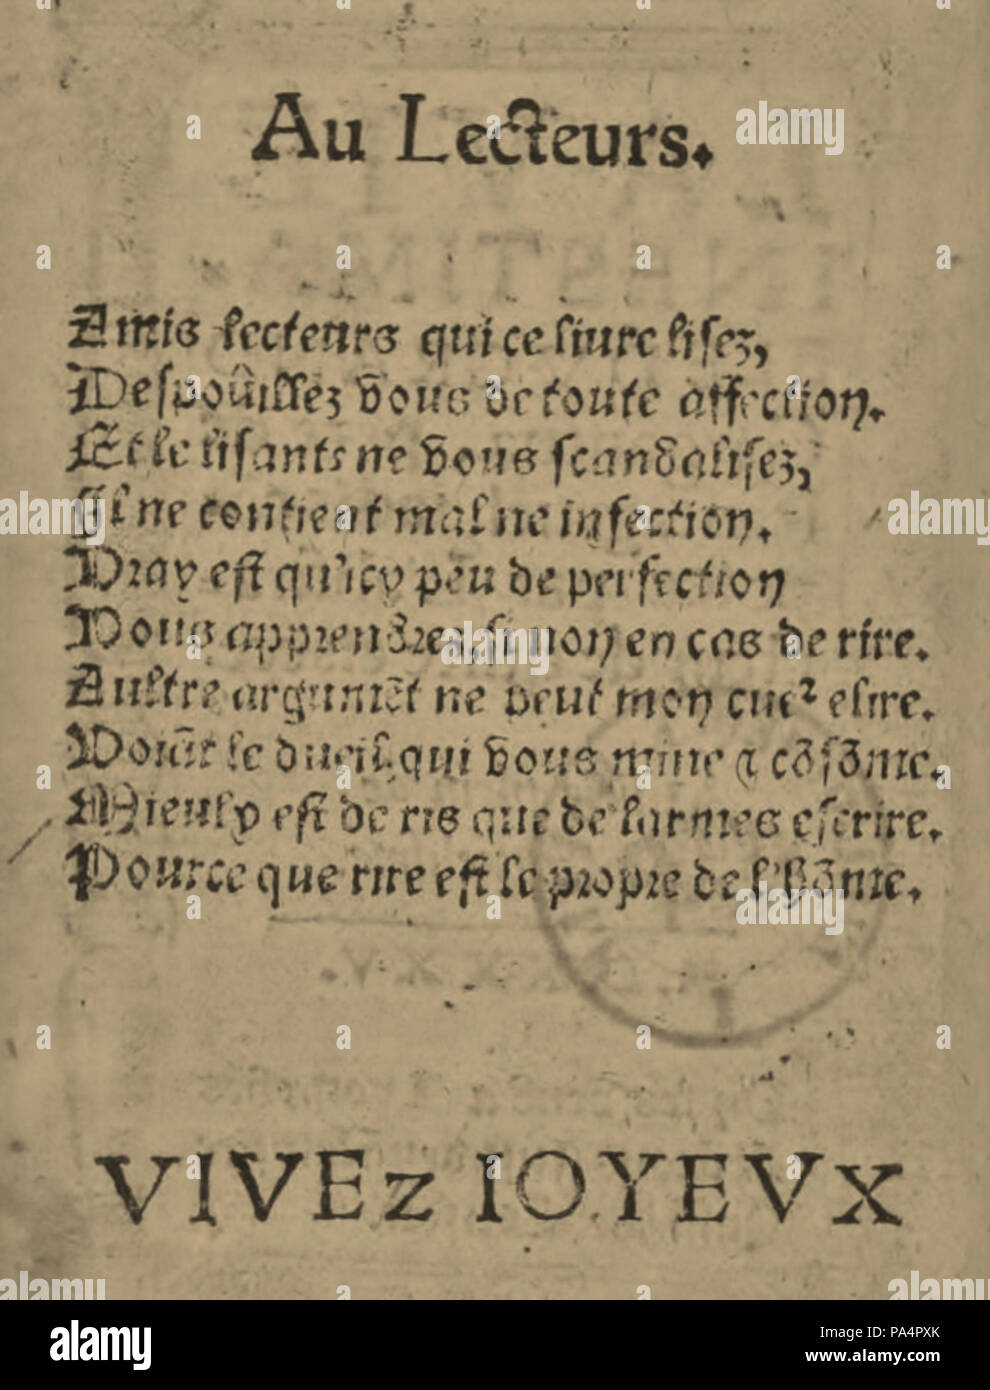 Au Lecteurs.
Amis lecteurs qui ce liure lisez,
Despoûillez vous de toute affection.
Et le lisants ne vous scandalisez,
Il ne contient mal ne infection.
Vray est qu'icy peu de perfection
Vous apprendrez, si non en cas de rire.
Aultre argumēt ne peut mon cueꝛ elire.
Voiāt le dueil, qui vous mine & cōsōme.
Mieulx est de ris que de larmes escrire.
Pource que rire est le propre de l'hōme.
VIVEz IOYEVX
alamy
Image ID: PA4PXK
www.alamy.com